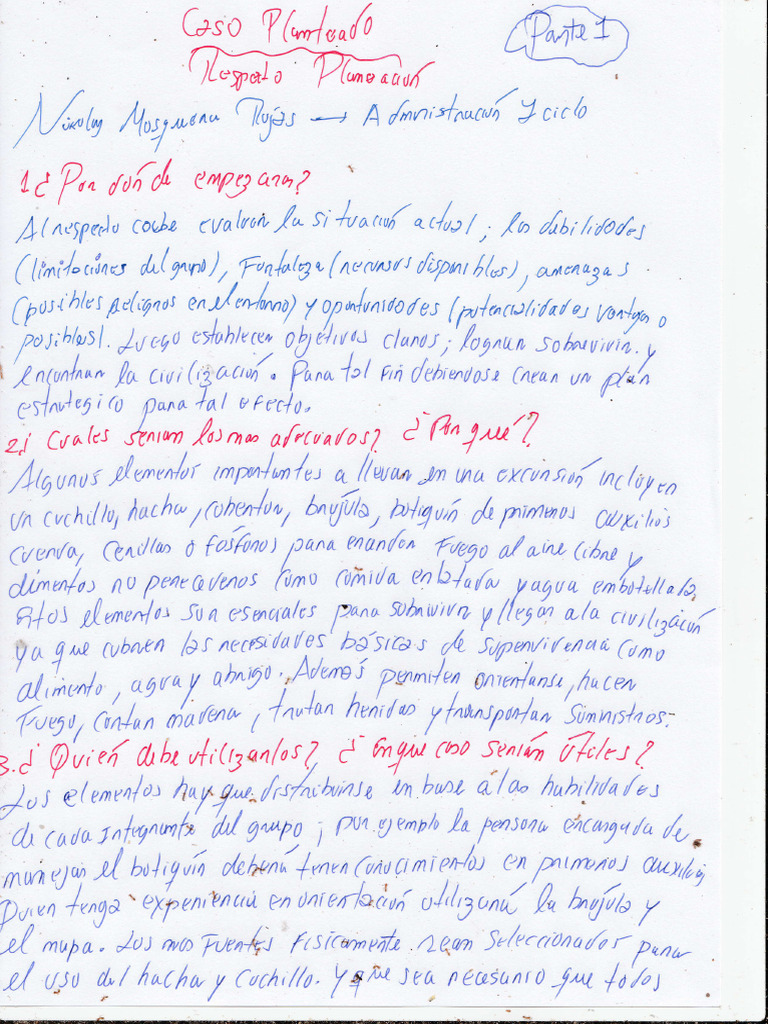 Caso Planteado
Parte 1
Respecto Planeación
Nikolas Mosquera Rojas → Administración 1 ciclo
1¿Por dónde empezaras?
Al respecto cabe evaluar la situación actual; las debilidades
(limitaciones del grupo), Fortaleza (recursos disponibles), amenazas
(posibles peligros en el entorno) y oportunidades (potencialidades ventajas o
posibles). Luego establecer objetivos claros; lograr sobrevivir y
encontrar la civilización. Para tal fin debiendose crear un plan
estrategico para tal efecto.
2¿Cuales serian los mas adecuados? ¿Por qué?
Algunos elementos importantes a llevar en una excursión incluyen
un cuchillo, hacha, cobertor, brújula, botiquín de primeros auxilios
cuerda, cerillas o fósforos para encender Fuego al aire libre y
alimentos no perecederos como comida enlatada y agua embotellada.
Estos elementos son esenciales para sobrivivir y llegar a la civilización
ya que cubren las necesidades básicas de supervivencia como
alimento, agua y abrigo. Además permiten orientarse, hacer
Fuego, cortar madera, tratar heridas y transportar suministros.
3.¿Quién debe utilizarlos?, ¿En que caso serián útiles?
Los elementos hay que distribuirse en base a las habilidades
de cada integrante del grupo; por ejemplo la persona encargada de
manejar el botiquín deberá tener conocimientos en primeros auxilios
Quien tenga experiencia en orientación utilizará la brújula y
el mapa. Los mas Fuertes Fisicamente sean seleccionados para
el uso del hacha y cuchillo. Y que sea necesario que todos